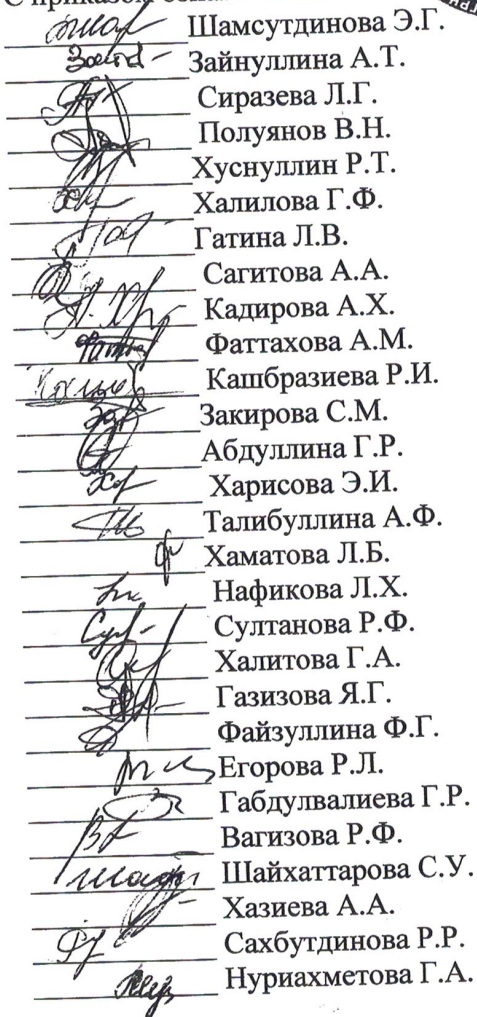 С приказом
Шамсутдинова Э.Г.
Зайнуллина А.Т.
Сиразева Л.Г.
Полуянов В.Н.
Хуснуллин Р.Т.
Халилова Г.Ф.
Гатина Л.В.
Сагитова А.А.
Кадирова А.Х.
Фаттахова А.М.
Кашбразиева Р.И.
Закирова С.М.
Абдуллина Г.Р.
Харисова Э.И.
Талибуллина А.Ф.
Хаматова Л.Б.
Нафикова Л.Х.
Султанова Р.Ф.
Халитова Г.А.
Газизова Я.Г.
Файзуллина Ф.Г.
Егорова Р.Л.
Габдулвалиева Г.Р.
Вагизова Р.Ф.
Шайхаттарова С.У.
Хазиева А.А.
Сахбутдинова Р.Р.
Нуриахметова Г.А.